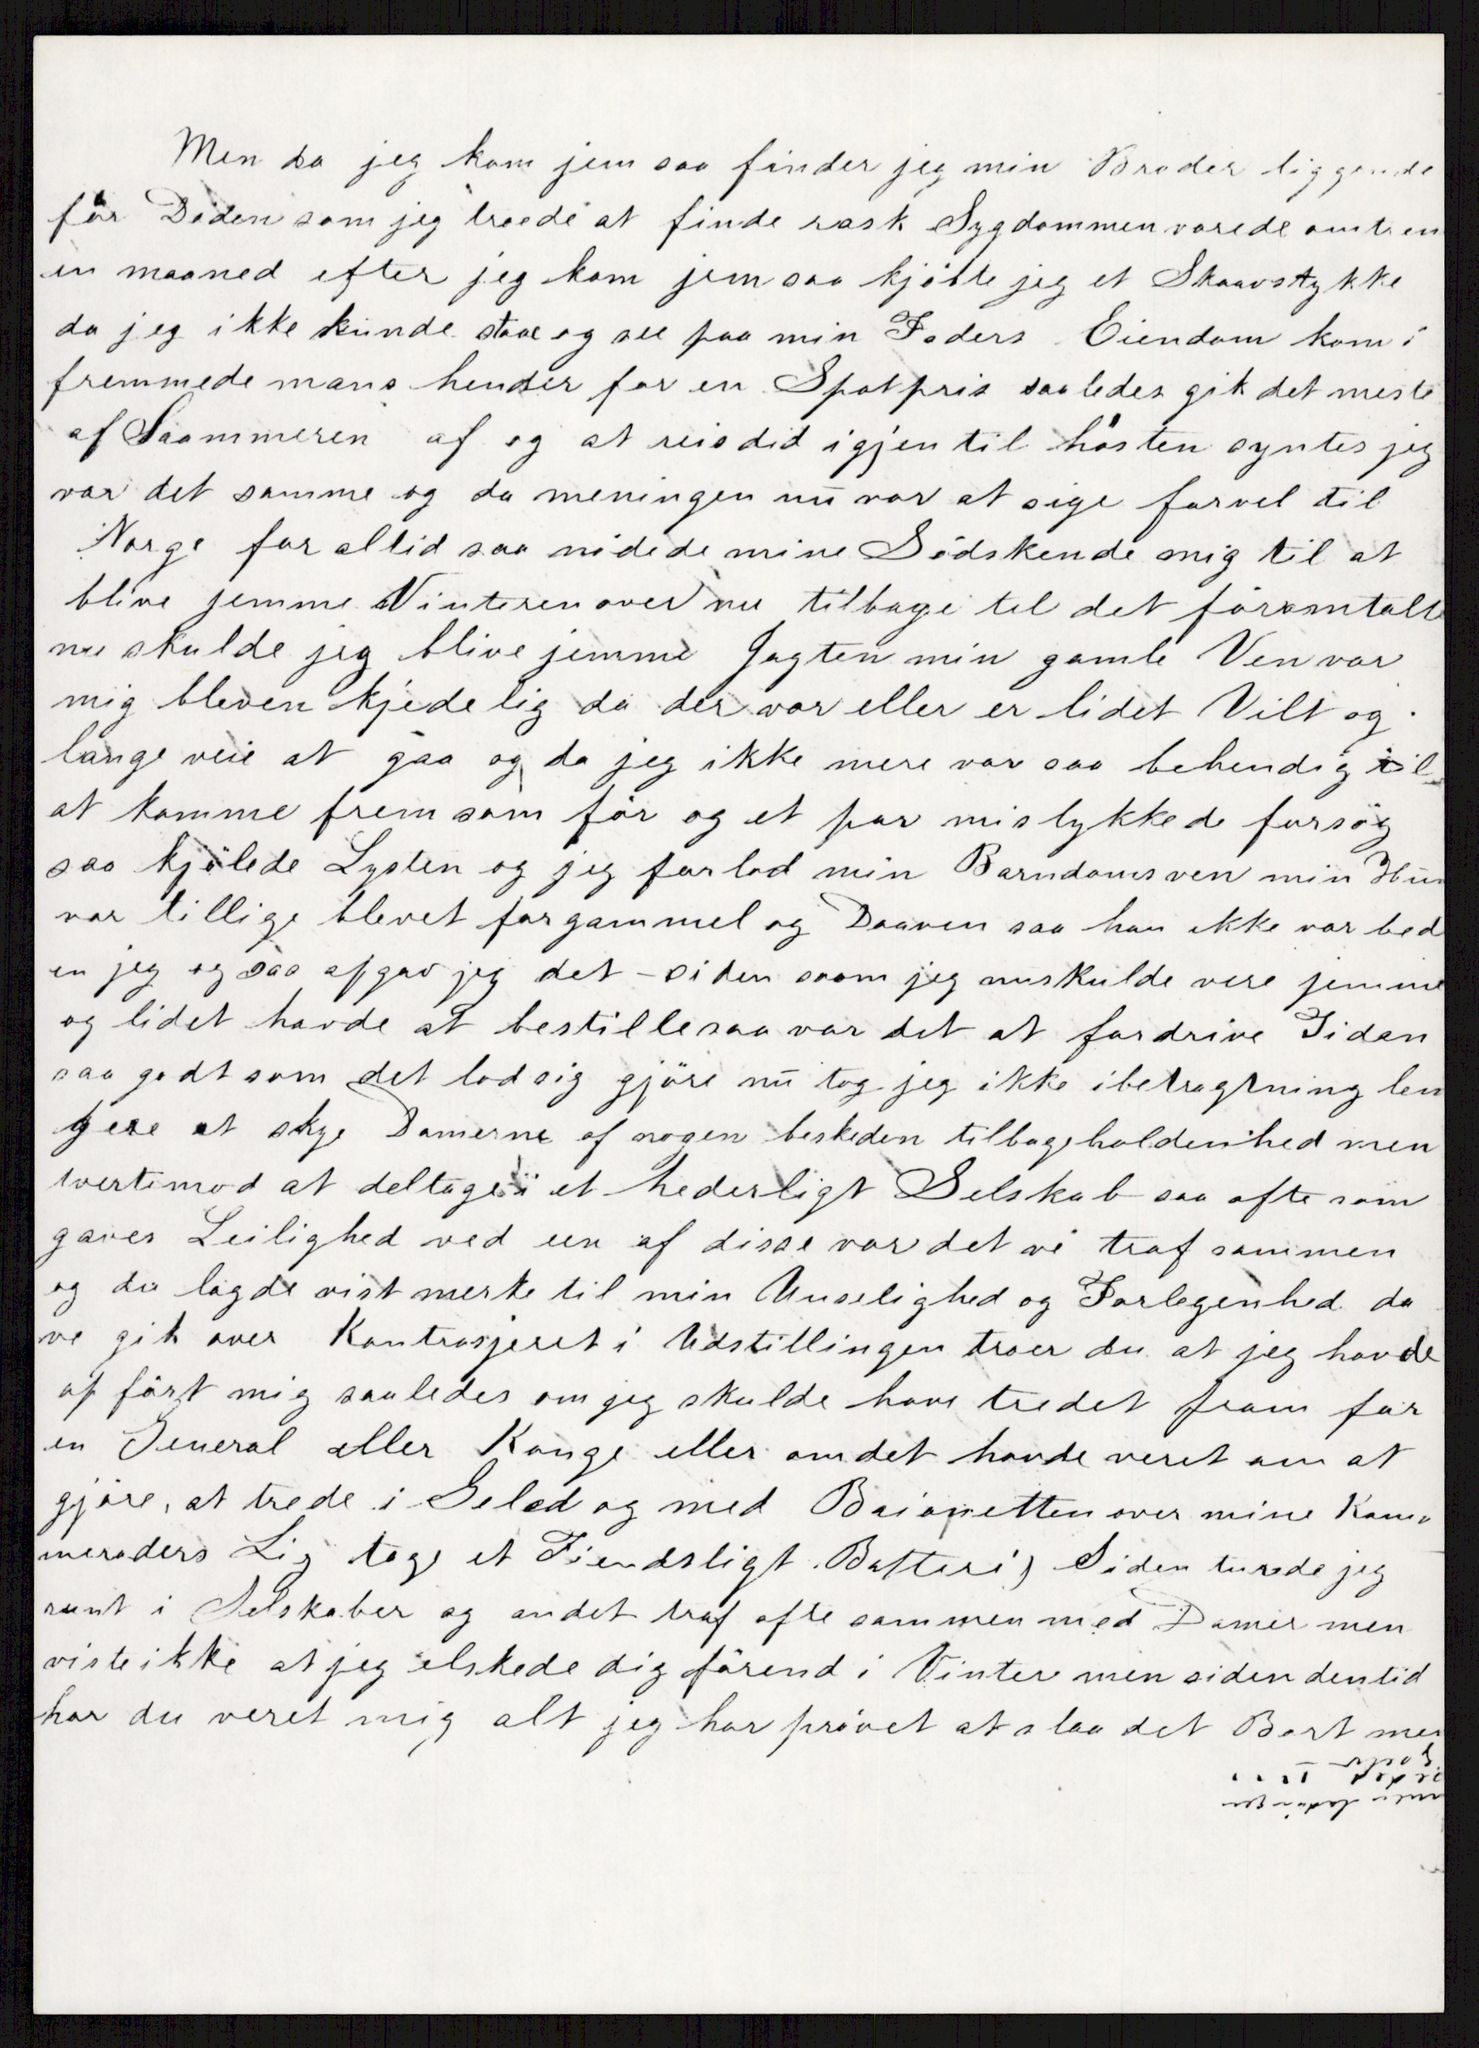 Men da jeg kom jem saa finder jeg min Broder liggende
för Döden som jeg troede at finde rask Sygdommen varede omtren
en maaned efter jeg kom jem saa kjöbte jeg et Skaavstykke
da jeg ikke kunde staae og see paa min Faders Eiendom kom i
fremmede mans hender for en Spotpris saaledes gik det meste
af Saammeren af og at reise did igjen til hösten syntes jeg
var det samme og da meningen nu var at sige farvel til
Norge for altid saa nidede mine Södskende mig til at
blive jemme Vinteren over nu tilbage til det föromtalte
nu skulde jeg blive jemme Jagten min gamle Ven var
mig bleven kjedelig da der var eller er lidet Vilt og
lange veie at gaa og da jeg ikke mere var saa behendig til
at komme frem som för og et par mislykkede forsög
saa kjölede Lysten og jeg forlod min Barndomsven min Hun
var tillige blevet for gammel og Daaven saa han ikke var bed
en jeg og saa afgav jeg det - siden saam jeg nu skulde vere jemme
og lidet havde at bestille saa var det at fordrive Tiden
saa godt som det lod sig gjöre nu tog jeg ikke i betragtning len
gere at skye Damerne af nogen beskeden tilbageholdenhed men
tvertimod at deltage i et hederligt Selskab saa ofte som
gaves Leilighed ved een af disse var det vi traf sammen
og du lagde vist merke til min Uuselighed og Forlegenhed da
ve gik over Kontrasjeret i Udstillingen troer du at jeg havde
opfört mig saaledes om jeg skulde have tredet fram for
en General eller Konge eller om det havde veret om at
gjöre, at trede i Geled og med Baionetten over mine Kam-
meraders Lig tage et Fiendsligt Batteri) Siden turede jeg
runt i Selskaber og andet traf ofte sammen med Damer men
viste ikke at jeg elskede dig förend i Vinter men siden den tid
har du veret mig alt jeg har prövet at slaa det Bort men